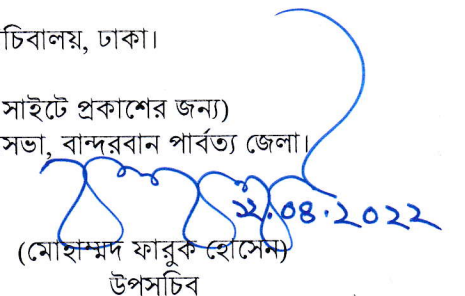 চিবালয়, ঢাকা।
সাইটে প্রকাশের জন্য)
সভা, বান্দরবান পার্বত্য জেলা।
২২.০৪.২০২২
(মোহাম্মদ ফারুক হোসেন)
উপসচিব